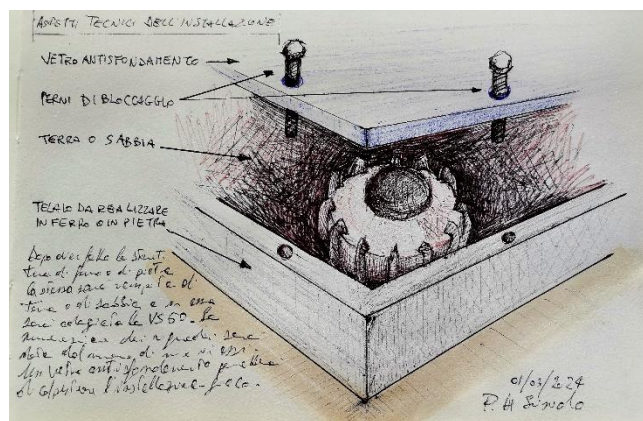 ASPETTI TECNICI DELL'INSTALLAZIONE
VETRO ANTISFONDAMENTO
PERNI DI BLOCCAGGIO
TERRA O SABBIA
TELAIO DA REALIZZARE
IN FERRO O IN PIETRA
Dopo aver fatto la strut
tura di ferro o di pietra
la stessa sarà riempita di
terra o di sabbia e in essa
sarà adagiata la VS50. La
dei riquadri sarà
data dal numero di
Un vetro antisfondamento
di l'installazione
01/03/2024